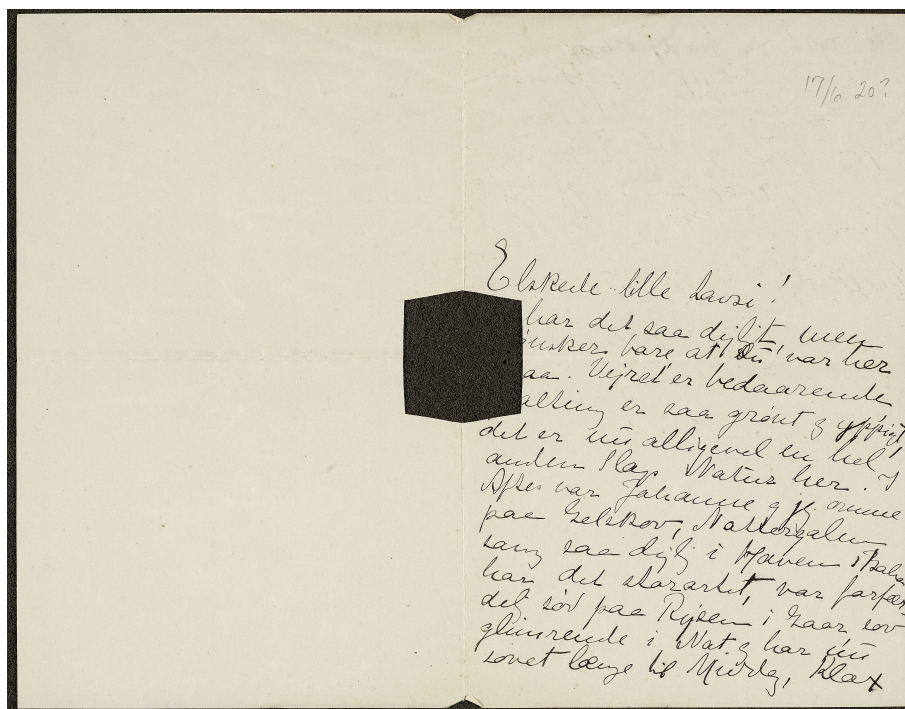 17/6 20?
Elskede lille Lavsi!
har det saa dejligt, men
ønsker bare at Du var her
aa. Vejret er bedaarende
alting er saa grønt & yppigt,
det er nu alligevel en hel
anden Slags Natur her. I
Aftes var Johanne & jeg omme
paa Gelskov, Nattergalen
sang saa dejlig i Haven,
har det storartet, var
det sød paa Rejsen i Gaar sov
glimrende i Nat & har nu
sovet længe til Middag,